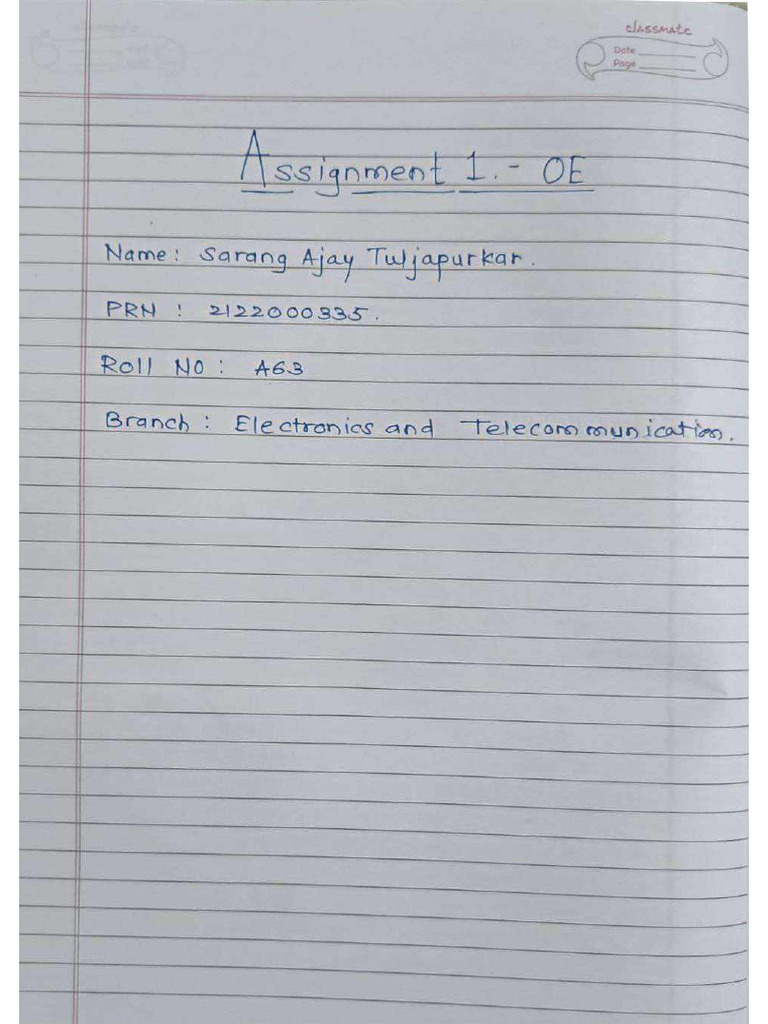 classmate
Date
Page
Assignment 1. - OE
Name: Sarang Ajay Tuljapurkar.
PRN : 2122000335.
Roll NO : A63
Branch : Electronics and Telecommunication.